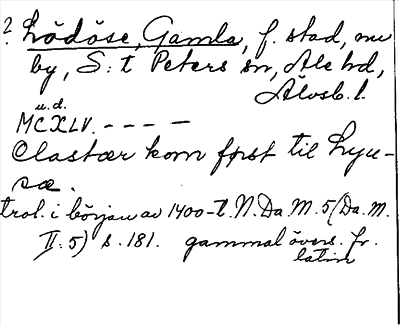 ? Lödöse, Gamla, f. stad, nu
by, S:t Peters sn, Ale hd,
Älvsb. l.
u. d.
MCXLV. - - - -
Olastær kom først til Lyu-
sæ.
trol. i början av 1400-t. N. Da M. 5 (Da. M.
II. 5) s. 181. gammal övers. fr.
latin